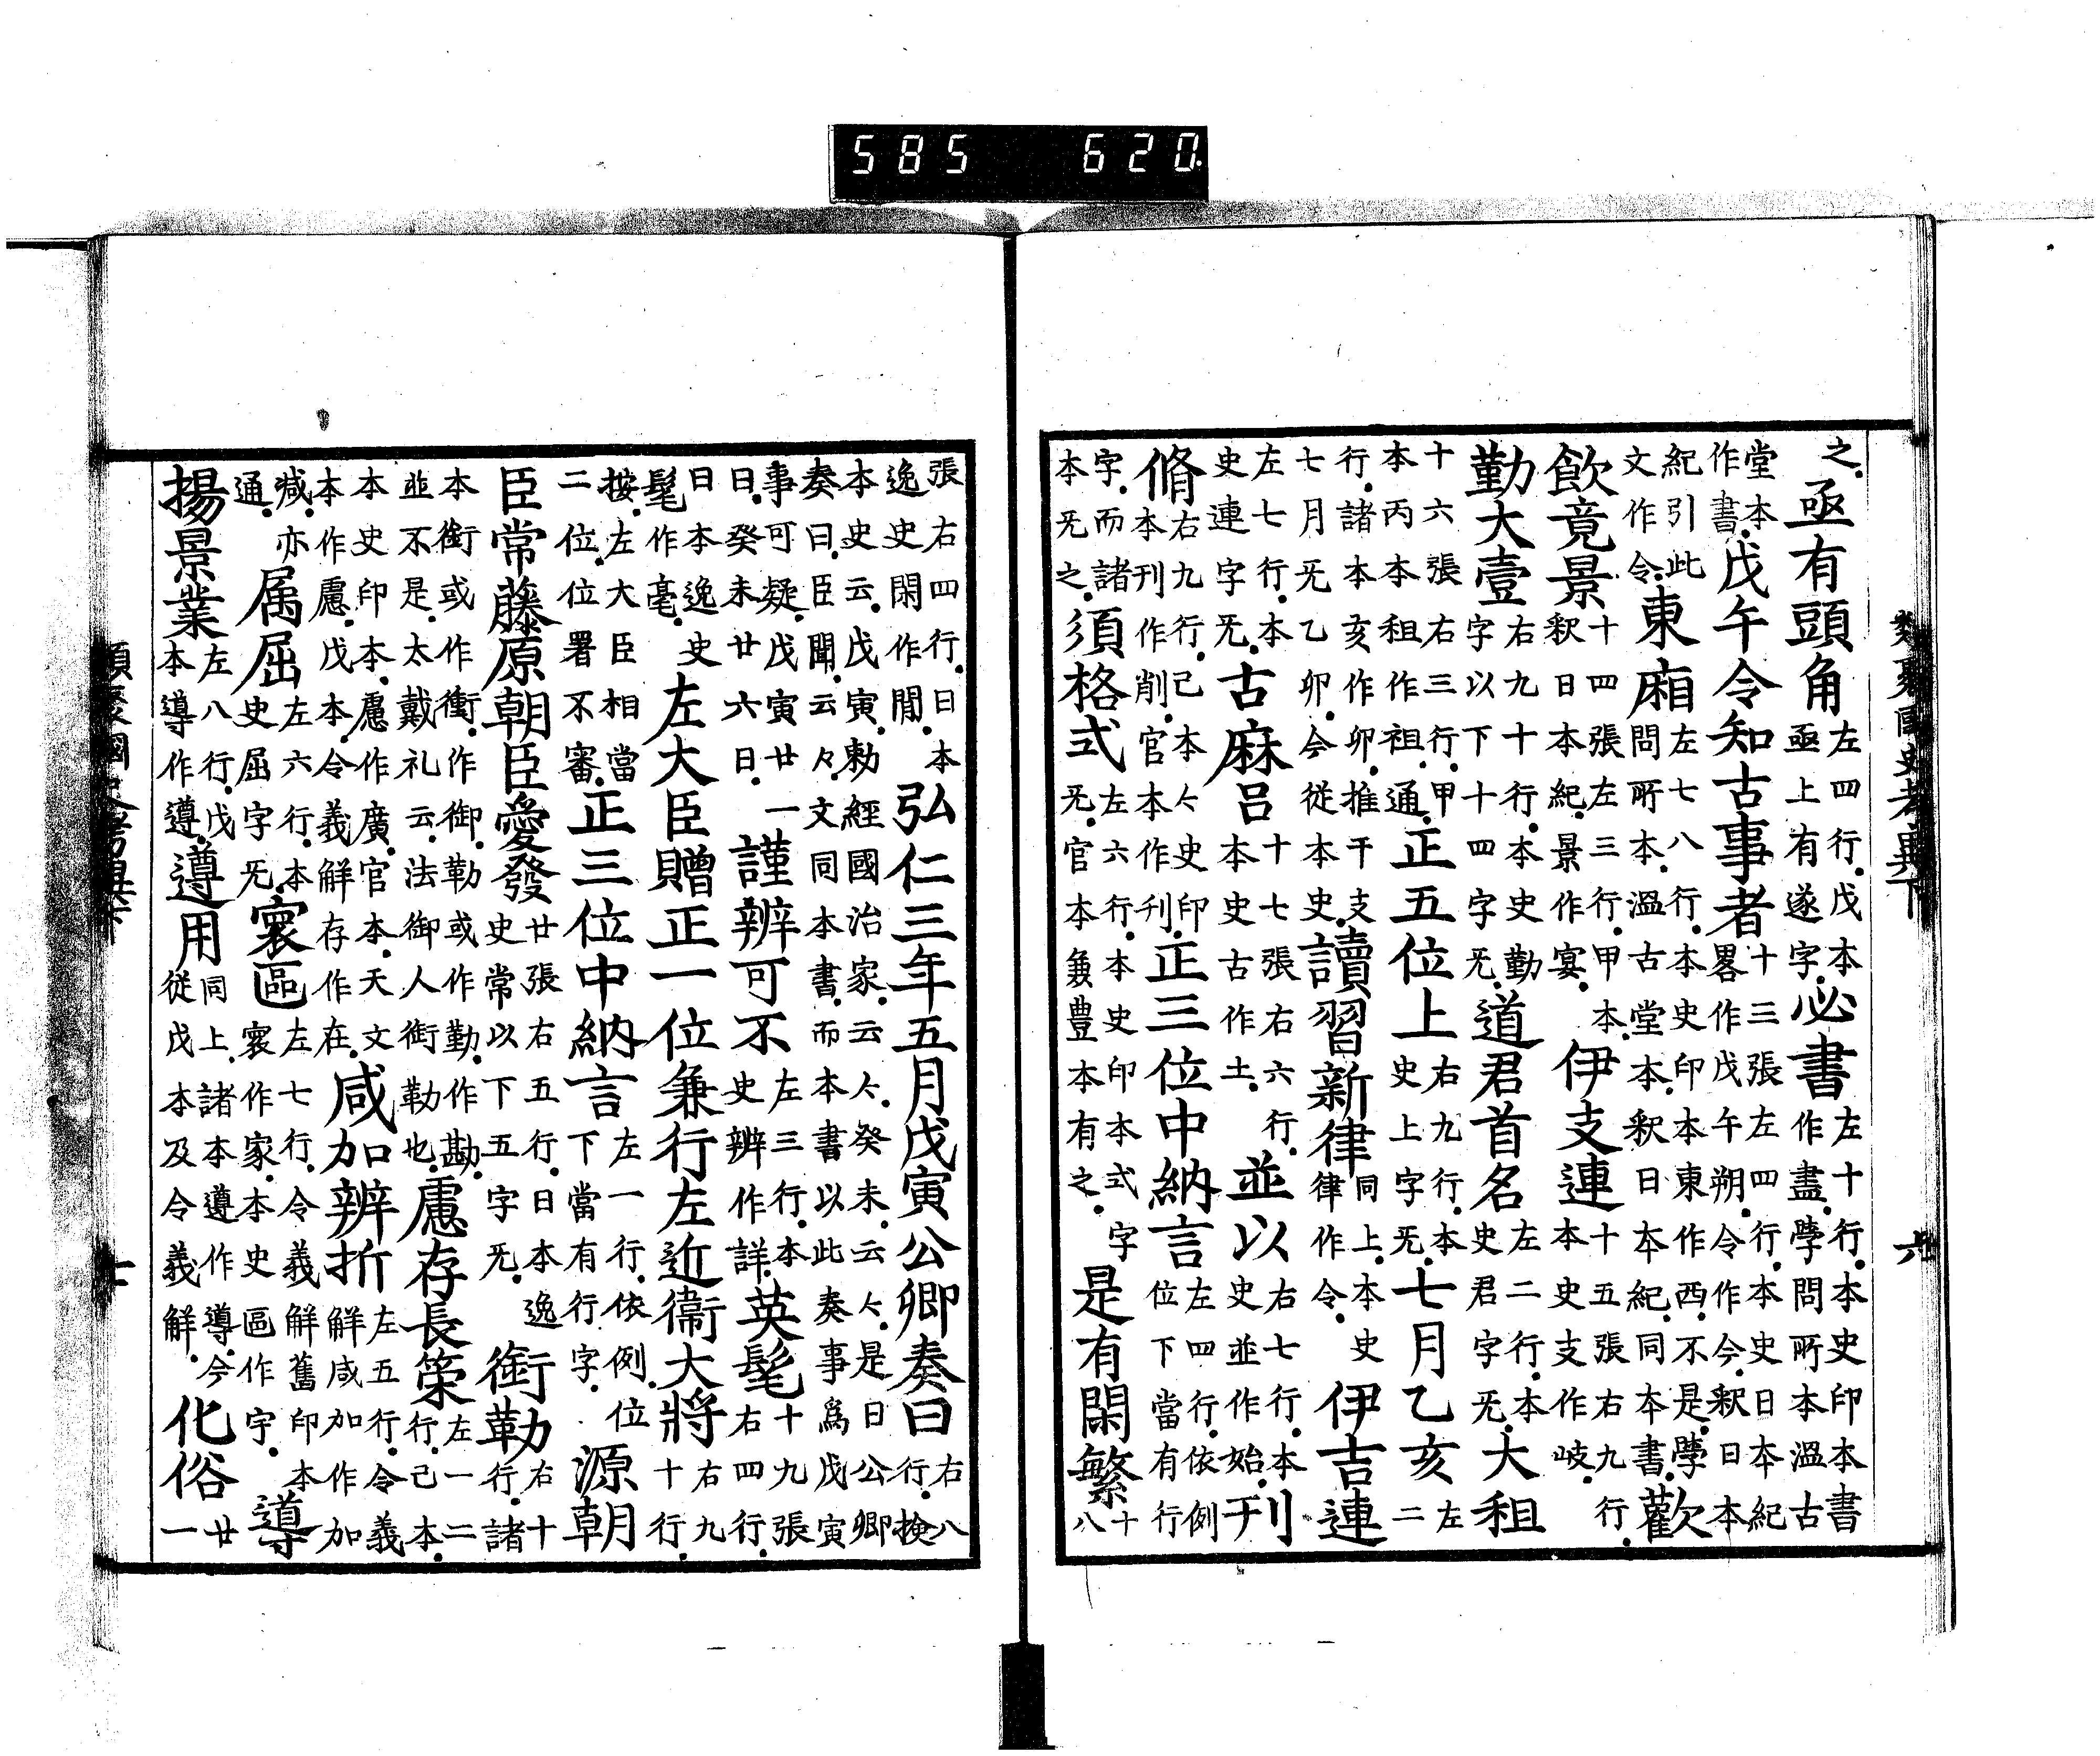 類聚國史考異下
六
之。亟有頭角左四行。戊本亟上有遂字。必書左十行。本史印本書作盡。學問所本溫古
堂本作書。戊午令知古事者十三張左四行。本史日本紀畧作戊午朔。令作今。釈日本
紀引此文作令。東廂左七八行。本史印本東作西不是。學問所本。溫古堂本。釈日本紀同本書。歡
飲竟景十四張左三行。甲本。釈日本紀。景作宴。伊支連十五張右九行。本史支作岐。
勤大壹右九十行。本史勤字以下十四字旡。道君首名左二行。本史君字旡。大租
十六張右三行。甲本丙本租作祖。通。正五位上右九行。本史上字旡。七月乙亥左二
行。諸本亥作卯。推干支七月旡乙卯。今從本史。讀習新律同上。本史律作令。伊吉連
左七行。本史連字旡。古麻呂十七張右六行。本史古作土。並以右七行。本史並作始。刊
脩右九行。己本亽史印本刊作削。官本作刊。正三位中納言左四行。依例位下當有行
字。而諸本旡之。須格式左六行。本史印本式字旡。官本㒵豊本有之。是有閑繁十八
張右四行。日本逸史閑作閒。弘仁三年五月戊寅公卿奏曰右八行。檢
本史云。戊寅。勅經國治家。云亽。癸未。云亽。是日公卿奏曰。臣聞。云々。文同本書。而本書以此奏事爲戊寅
事可疑。戊寅廿一日。癸未廿六日。謹辨可不左三行。本史辨作詳。英髦十九張右四行。
日本逸史髦作毫。左大臣贈正一位兼行左近衞大將右九十行。
按。左大臣相當二位。位署不審。正三位中納言左一行。依例。位下當有行字。源朝
臣常藤原朝臣愛發廿張右五行。日本逸史常以下五字旡。銜勒右十行。諸
本銜或作衝。作御。勒或作勤。作勘。並不是。太戴礼云。法御人銜勒也。慮存長策左一二行。己本。
本史印本。慮作廣。官本。天文本作慮。戊本。令義解存作在。咸加辨折左五行。令義解咸加作加
減。亦通。属屈左六行。本史屈字旡。寰區左七行。令義解舊印本寰作家。本史區作宇。導
揚景業左八行。戊本導作遵。遵用同上。諸本遵作導。今從戊本及令義解。化俗廿一
類聚國史考異下
七
585 620